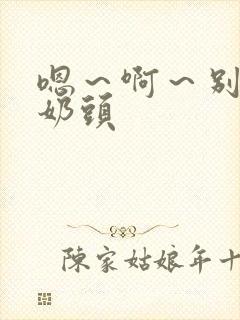 嗯～啊～别
奶頭
陳家姑娘年十